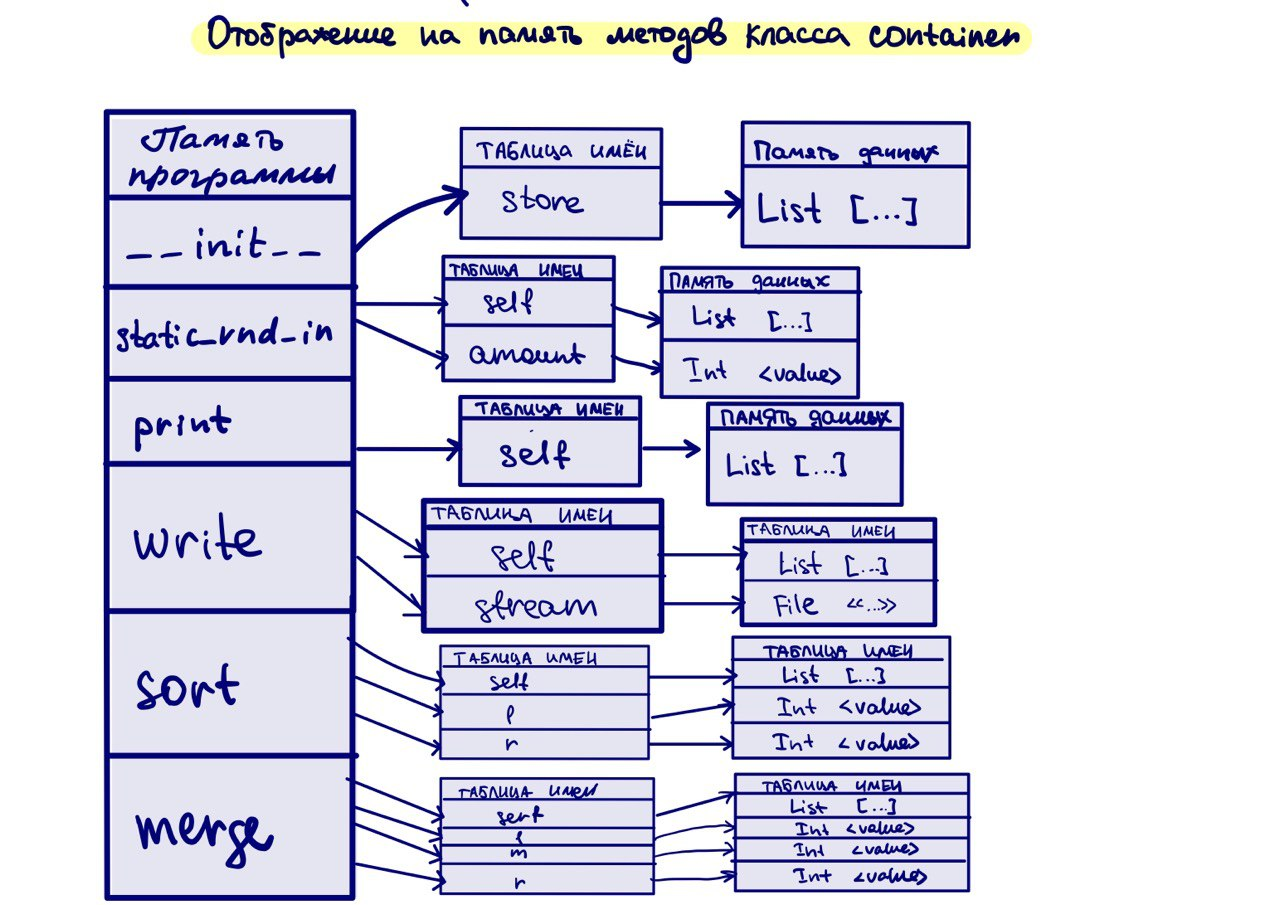 Отображение на память методов класса container
Память
программы
__init__
static_rnd_in
print
write
sort
merge
ТАБЛИЦА ИМЁН
store
Память данных
List [...]
ТАБЛИЦА ИМЕН
self
amount
ПАМЯТЬ данных
List [...]
Int <value>
ТАБЛИЦА ИМЕН
self
ПАМЯТЬ данных
List [...]
ТАБЛИЦА ИМЕН
self
stream
ТАБЛИЦА ИМЕН
List [...]
File <<...>>
ТАБЛИЦА ИМЕН
self
l
r
ТАБЛИЦА ИМЕН
List [...]
Int <value>
Int <value>
ТАБЛИЦА ИМЕН
l
m
r
ТАБЛИЦА ИМЕН
List [...]
Int <value>
Int <value>
Int <value>